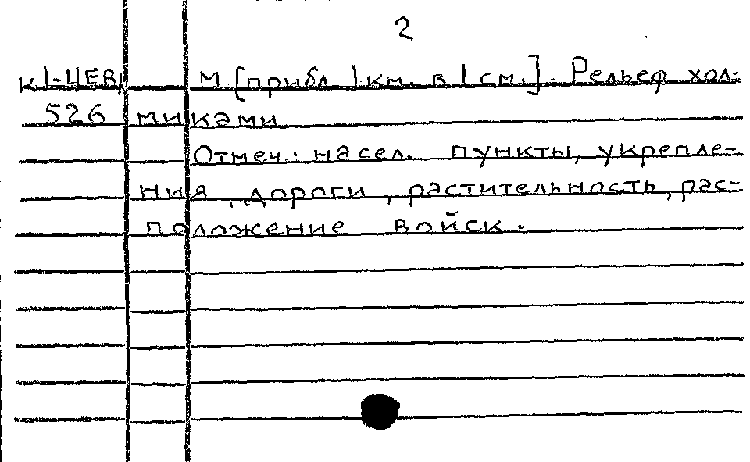 2
К1-ЦЕВ М [прибл 1 км. в 1 см.]. Рельеф хол-
526 миками
Отмеч.: насел. пункты, укрепле-
ния, дороги, растительность, рас-
положение войск.